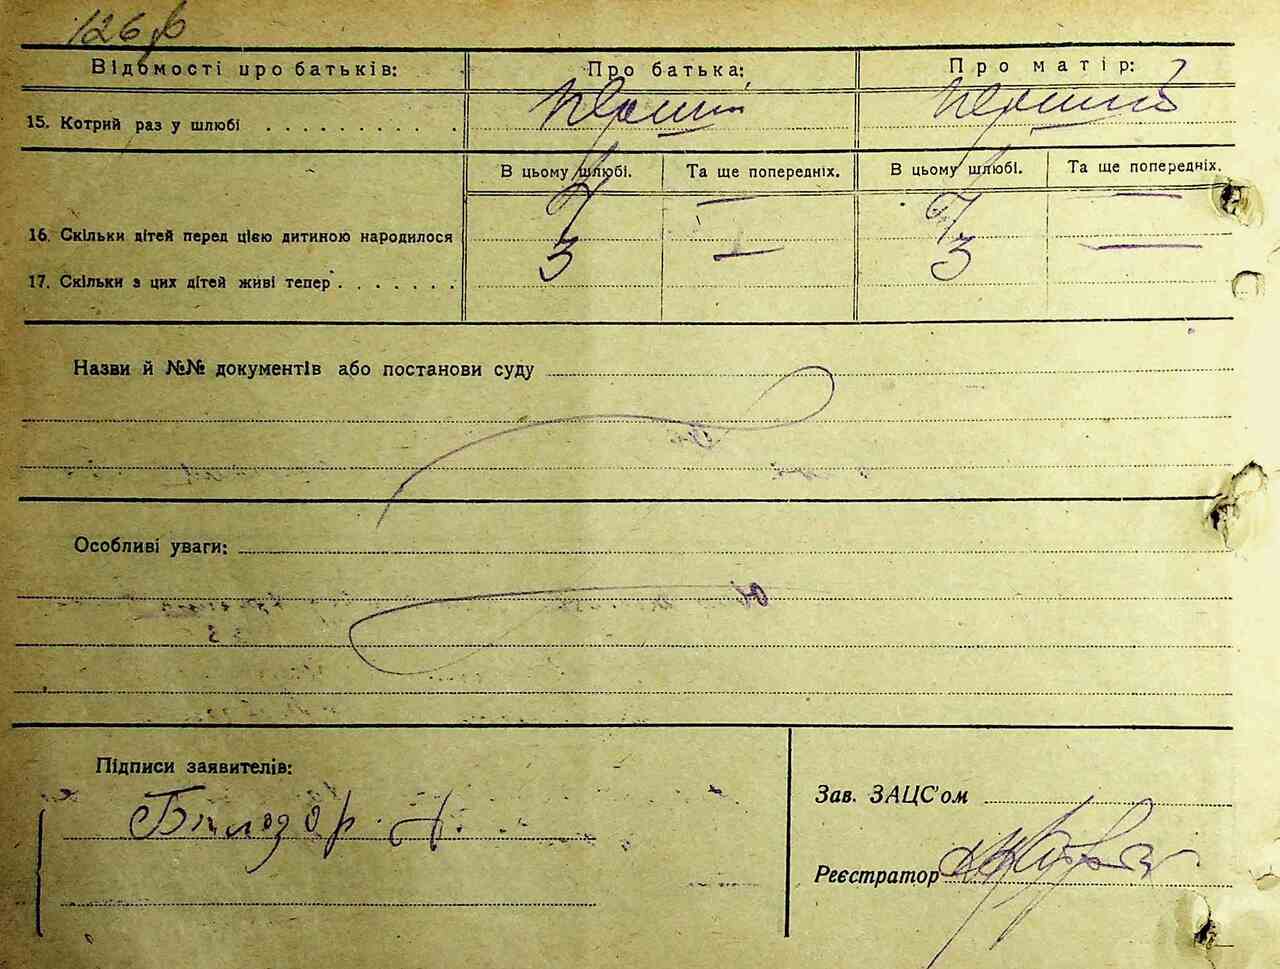 126
Відомості про батьків: Про батька: Про матір:
15. Котрий раз у шлюбі . . . . . . . . . . Перший Перший
В цьому шлюбі. Та ще попередніх. В цьому шлюбі. Та ще попередніх.
16. Скільки дітей перед цією дитиною народилося 4 — 4 —
17. Скільки з цих дітей живі тепер . . . . . . . 3 — 3 —
Назви й №№ документів або постанови суду
Особливі уваги:
Підписи заявителів:
Білозор
Зав. ЗАЦС'ом
Реєстратор